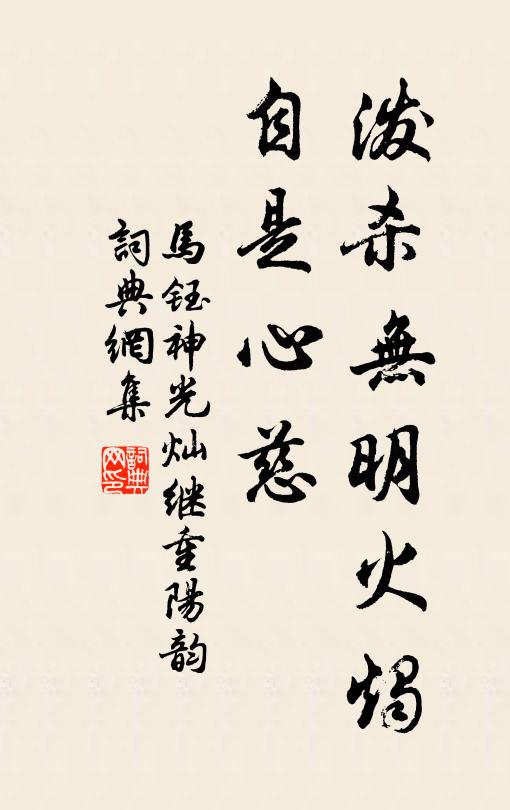 泼杀無明火燭
自是心慈
馬鈺神光灿继重陽韵
詞典網集
詞典網印